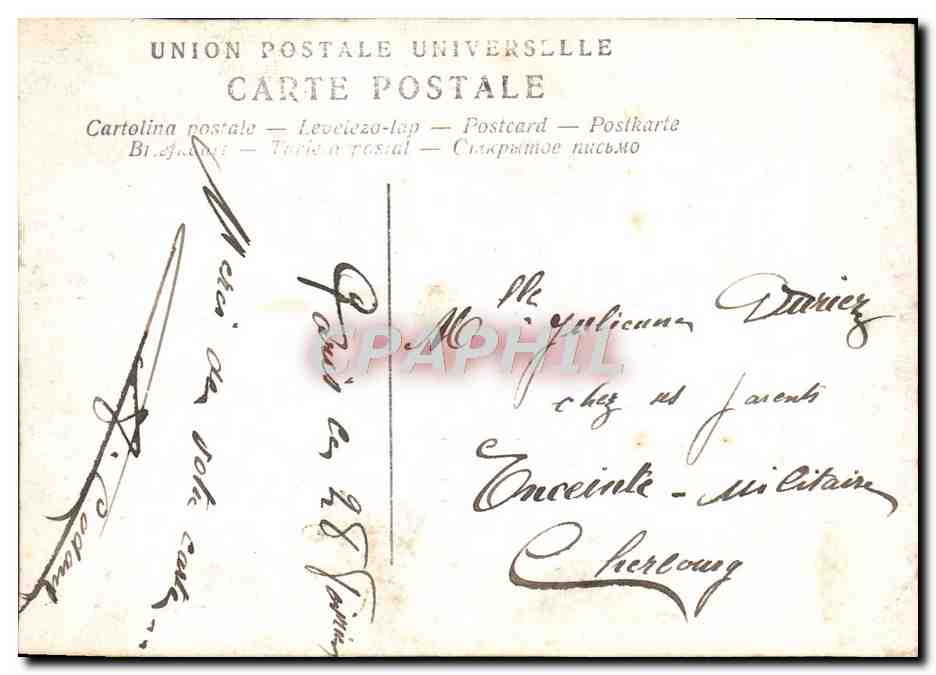 UNION POSTALE UNIVERSELLE
CARTE POSTALE
Cartolina postale — Levelezo-lap — Postcard — Postkarte
Briefkaart — Tarjeta postal — Открытое письмо
Paris le 28
Merci de votre carte..
Mlle Julienne Duriez
chez ses parents
Enceinte - Militaire
Cherbourg
CPAPHIL